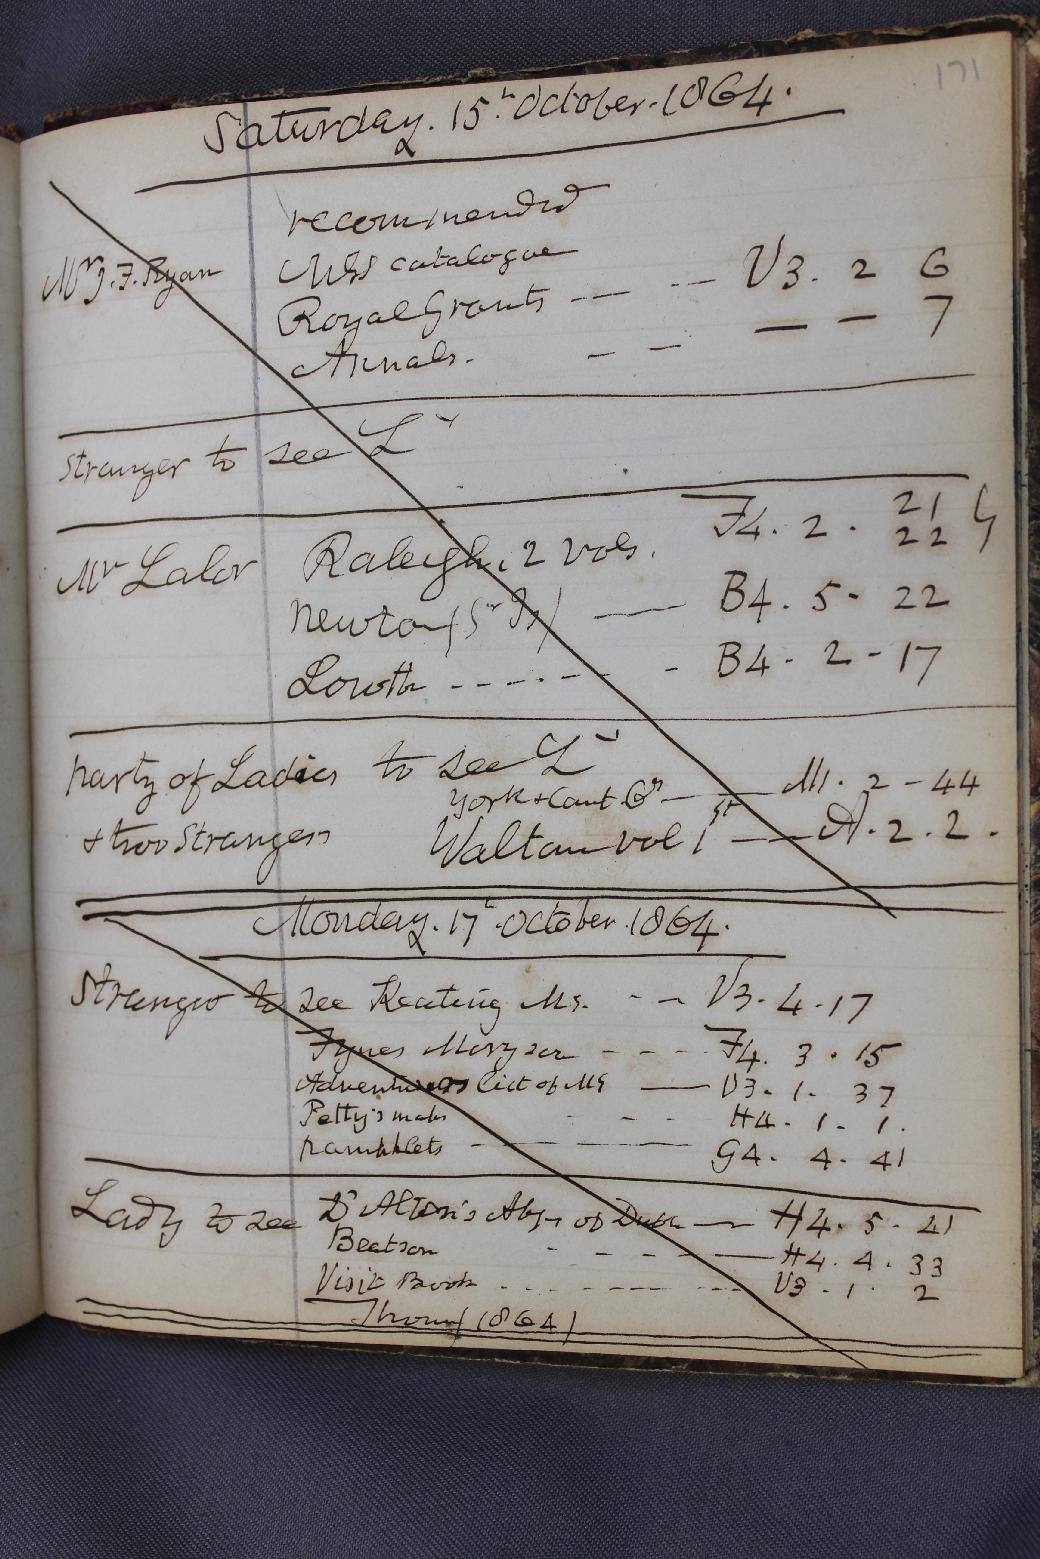 171
Saturday. 15th October. 1864.
recommended
Mr J. F. Ryan MSS catalogue
Royal Grants -- -- V3. 2 6
Annals. - - — — 7
Stranger to see Ly
Mr Lalor Raleigh. 2 vols. F4. 2. 21
22
Newton (Sr Is) — B4. 5- 22
Lowth ------ - B4- 2-17
Party of Ladies to see Ly
York & Cant Gr — M. 2-44
& two Strangers
Waltons vol 1st — A. 2. 2.
Monday. 17th October. 1864.
Stranger to see Keating Ms. -- V3. 4. 17
Fynes Moryson ---- F4. 3. 15
Adventurers list of MS — V3. 1. 37
Petty's maps - - - H4. 1. 1.
pamphlets - — G4. 4. 41
Lady to see D'Alton's Abps of Dub — H4. 5. 41
Beatson - - - — H4. 4. 33
Visit Book ------ V3. 1. 2
Thom (1864)